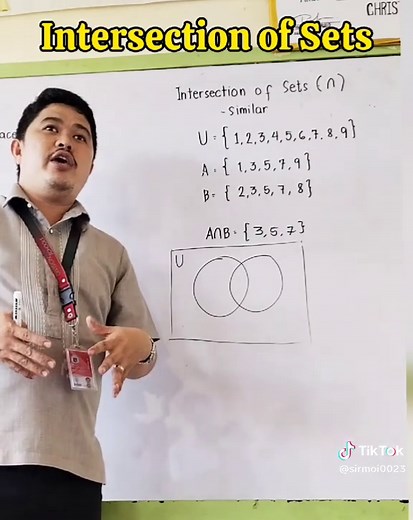 CHRIS
Intersection of Sets
Intersection of Sets (∩)
- Similar
U = { 1,2,3,4,5,6,7,8,9}
A = { 1,3,5,7,9}
B = { 2,3,5,7,8}
A∩B = {3,5,7}
U
TikTok
@sirmoi0023